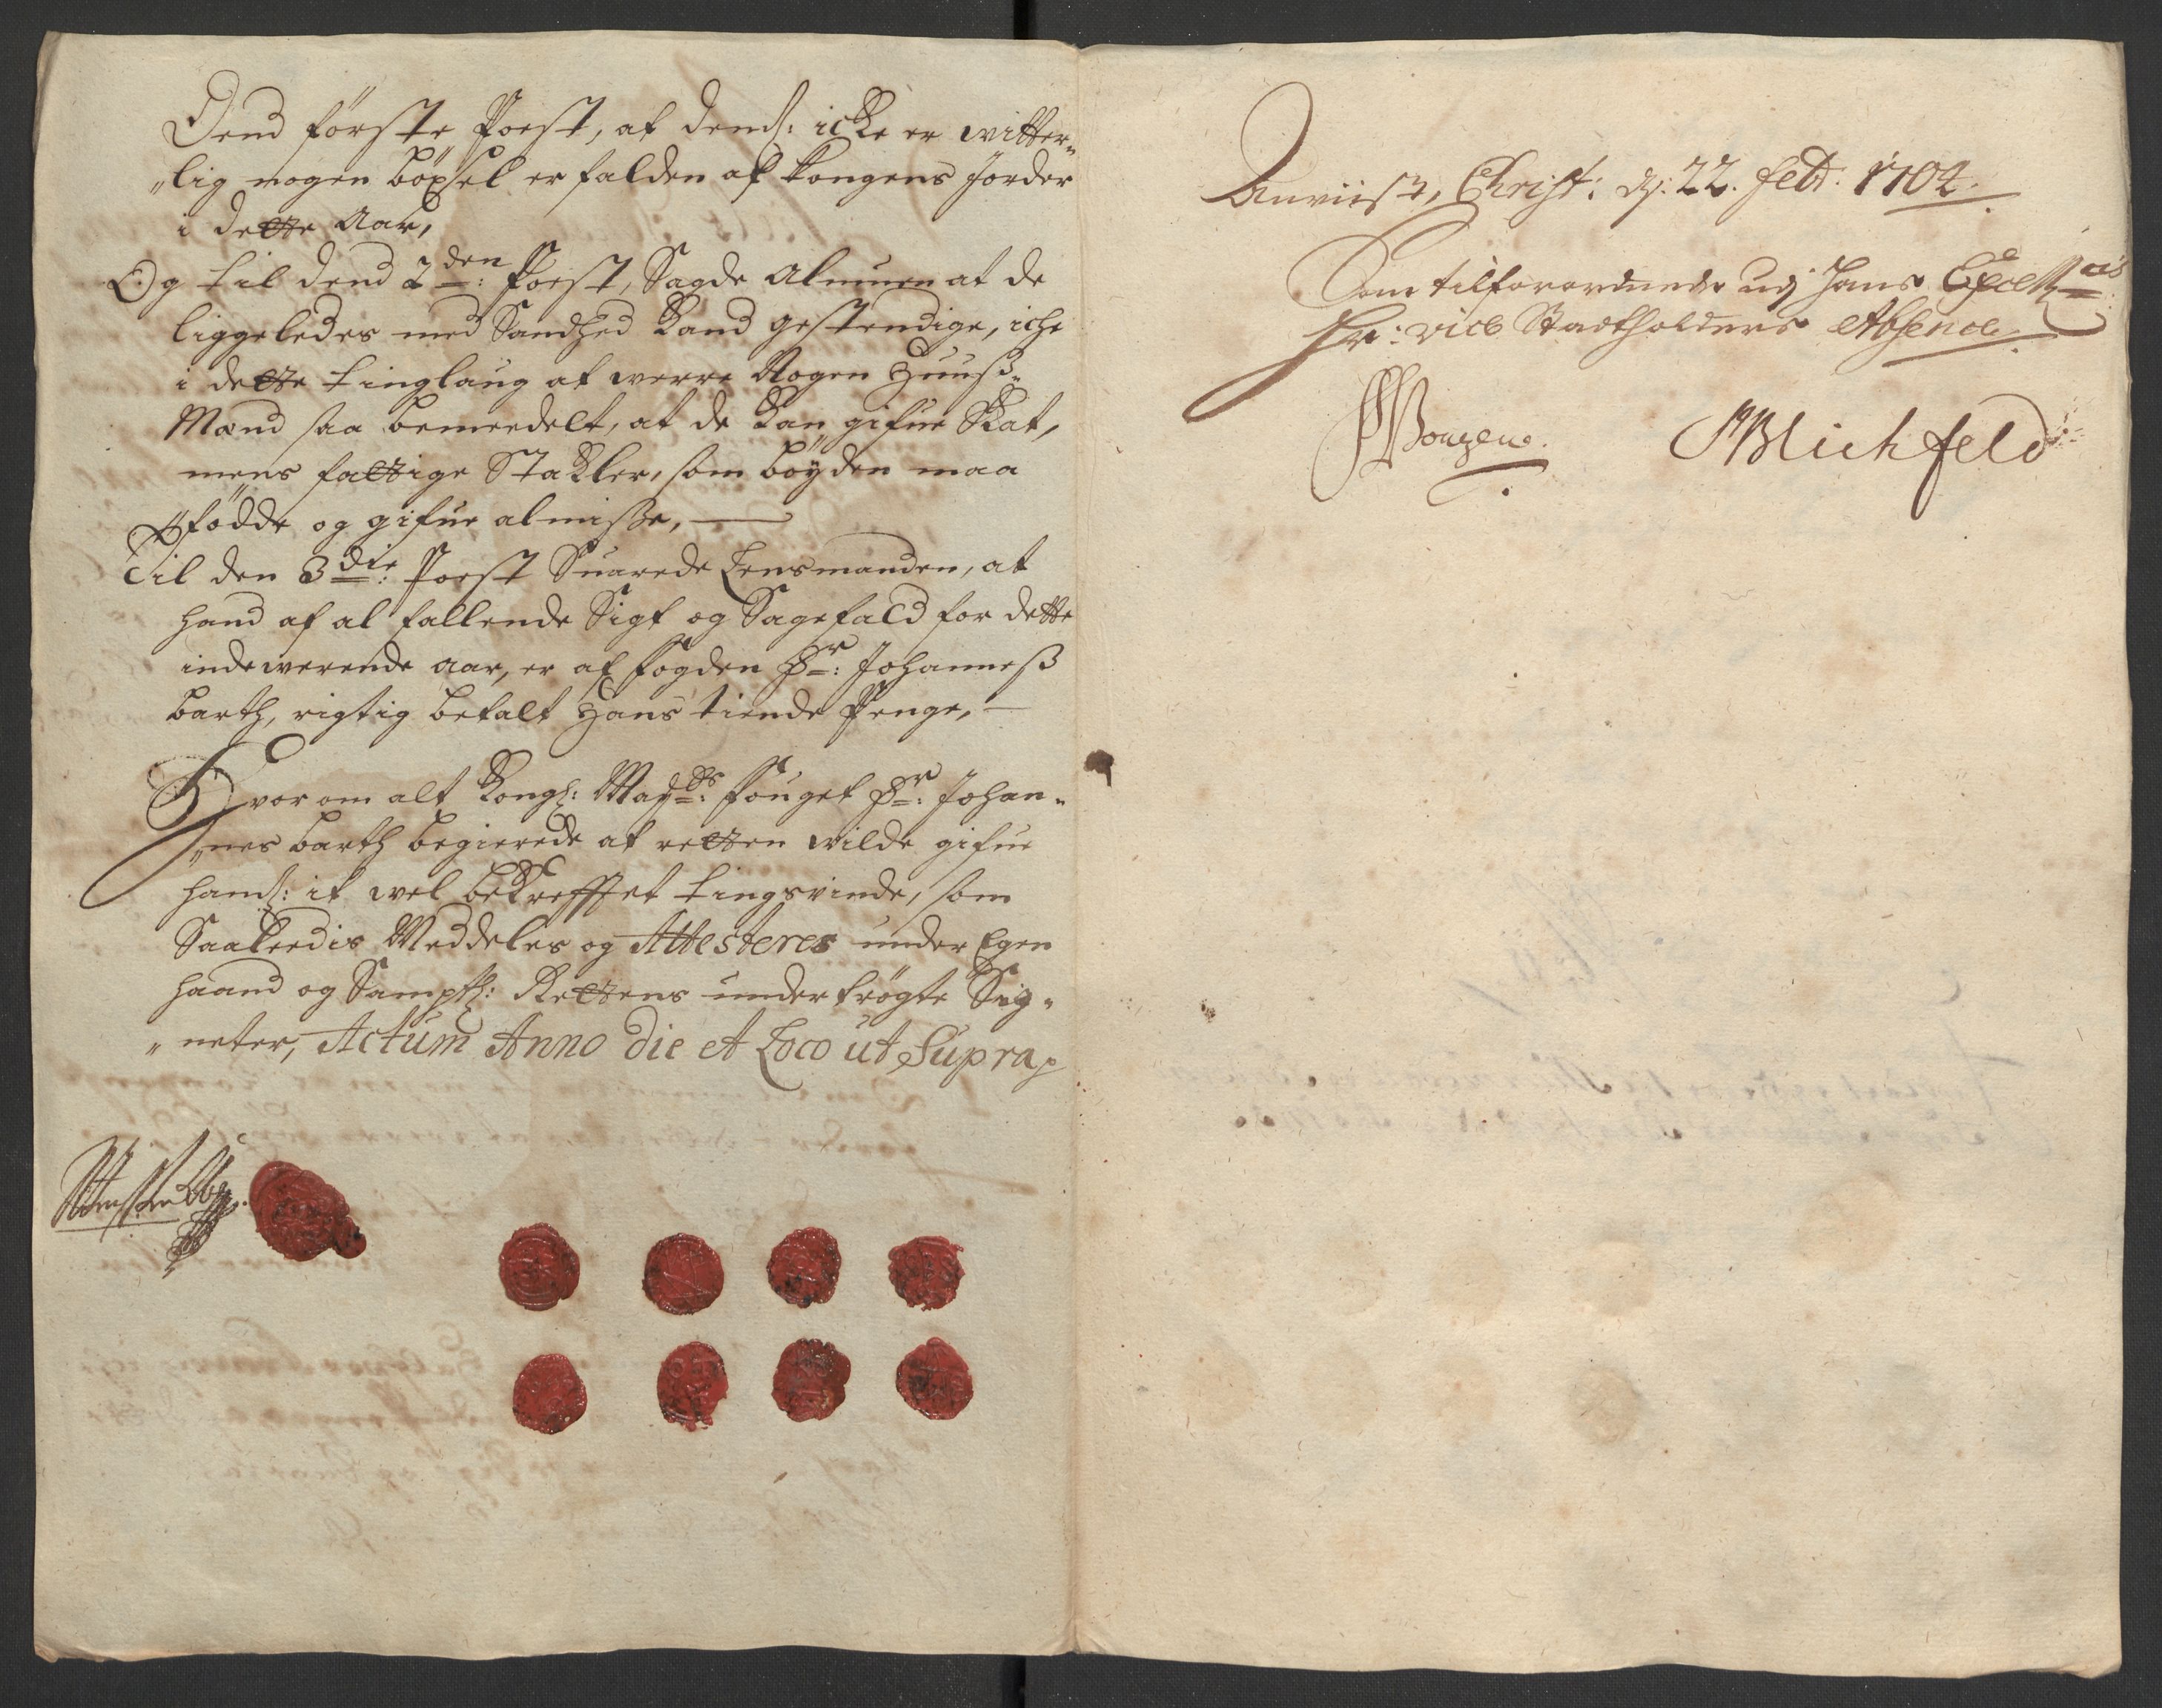 Dend förste Poest, at dend: icke er vitter-
"lig nogen böxsel er falden af kongens Jorder
i dette Aar,
Og til dend 2den: Poest, Sagde Almuen at de
liggeledes med Sandhed kand gestendige, iche
i dette tinglaug at werre Nogen Huuß-
Mænd saa bemeedelt, at de kan gifue Skat,
mens fattige Stakler, som böyden maa
föde og gifue almisse,
Til den 3die: Poest Suarede Lensmanden, at
hand af al fallende Sigt og Sagefald for dette
indewerende aar, er af fogden Hr: Johanneß
barth, rigtig betalt Hans tiende Penge,
Hvor om alt Kongl: Mayts: fouget Hr: Johan-
"nes barth begierede at retten wilde gifue
hand: it wel bekrefftet tingsvinde, som
Saaledis Meddeles og Attesteres under Egen
haand og Samptl: Rettens undertrögte Sig-
"neter, Actum Anno die et Loco ut Supra
Anviist, Christ: d: 22. Feb: 1704.
Som tilforordnede udj Hans Excellcis
Hr: vice Stadtholders Absence
Blichfeld